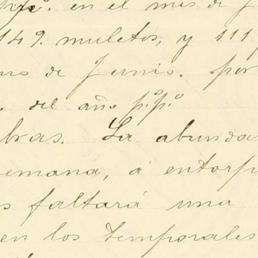 en el mes de J
149. muletos, y 111
de Junio. por
del año p.º p.º
bras. La abunda
emana, á entorp
s faltará una
en los temporales